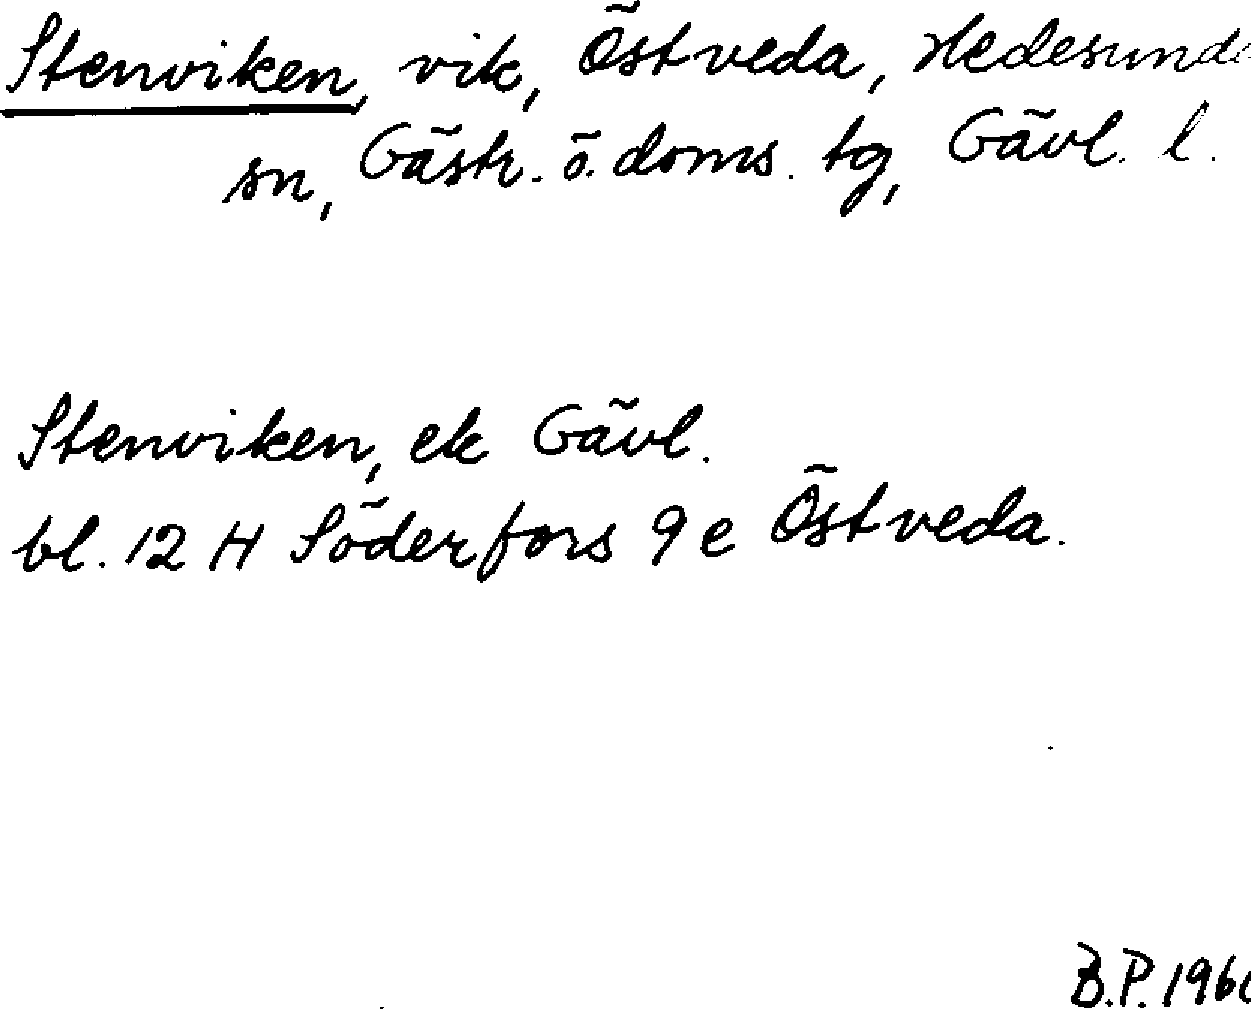 Stenviken, vik, Östveda, Hedesunda
sn, Gästr. ö. doms. tg, Gävl. l.
Stenviken, ek Gävl.
bl. 12 H Söderfors 9 e Östveda.
B.P.